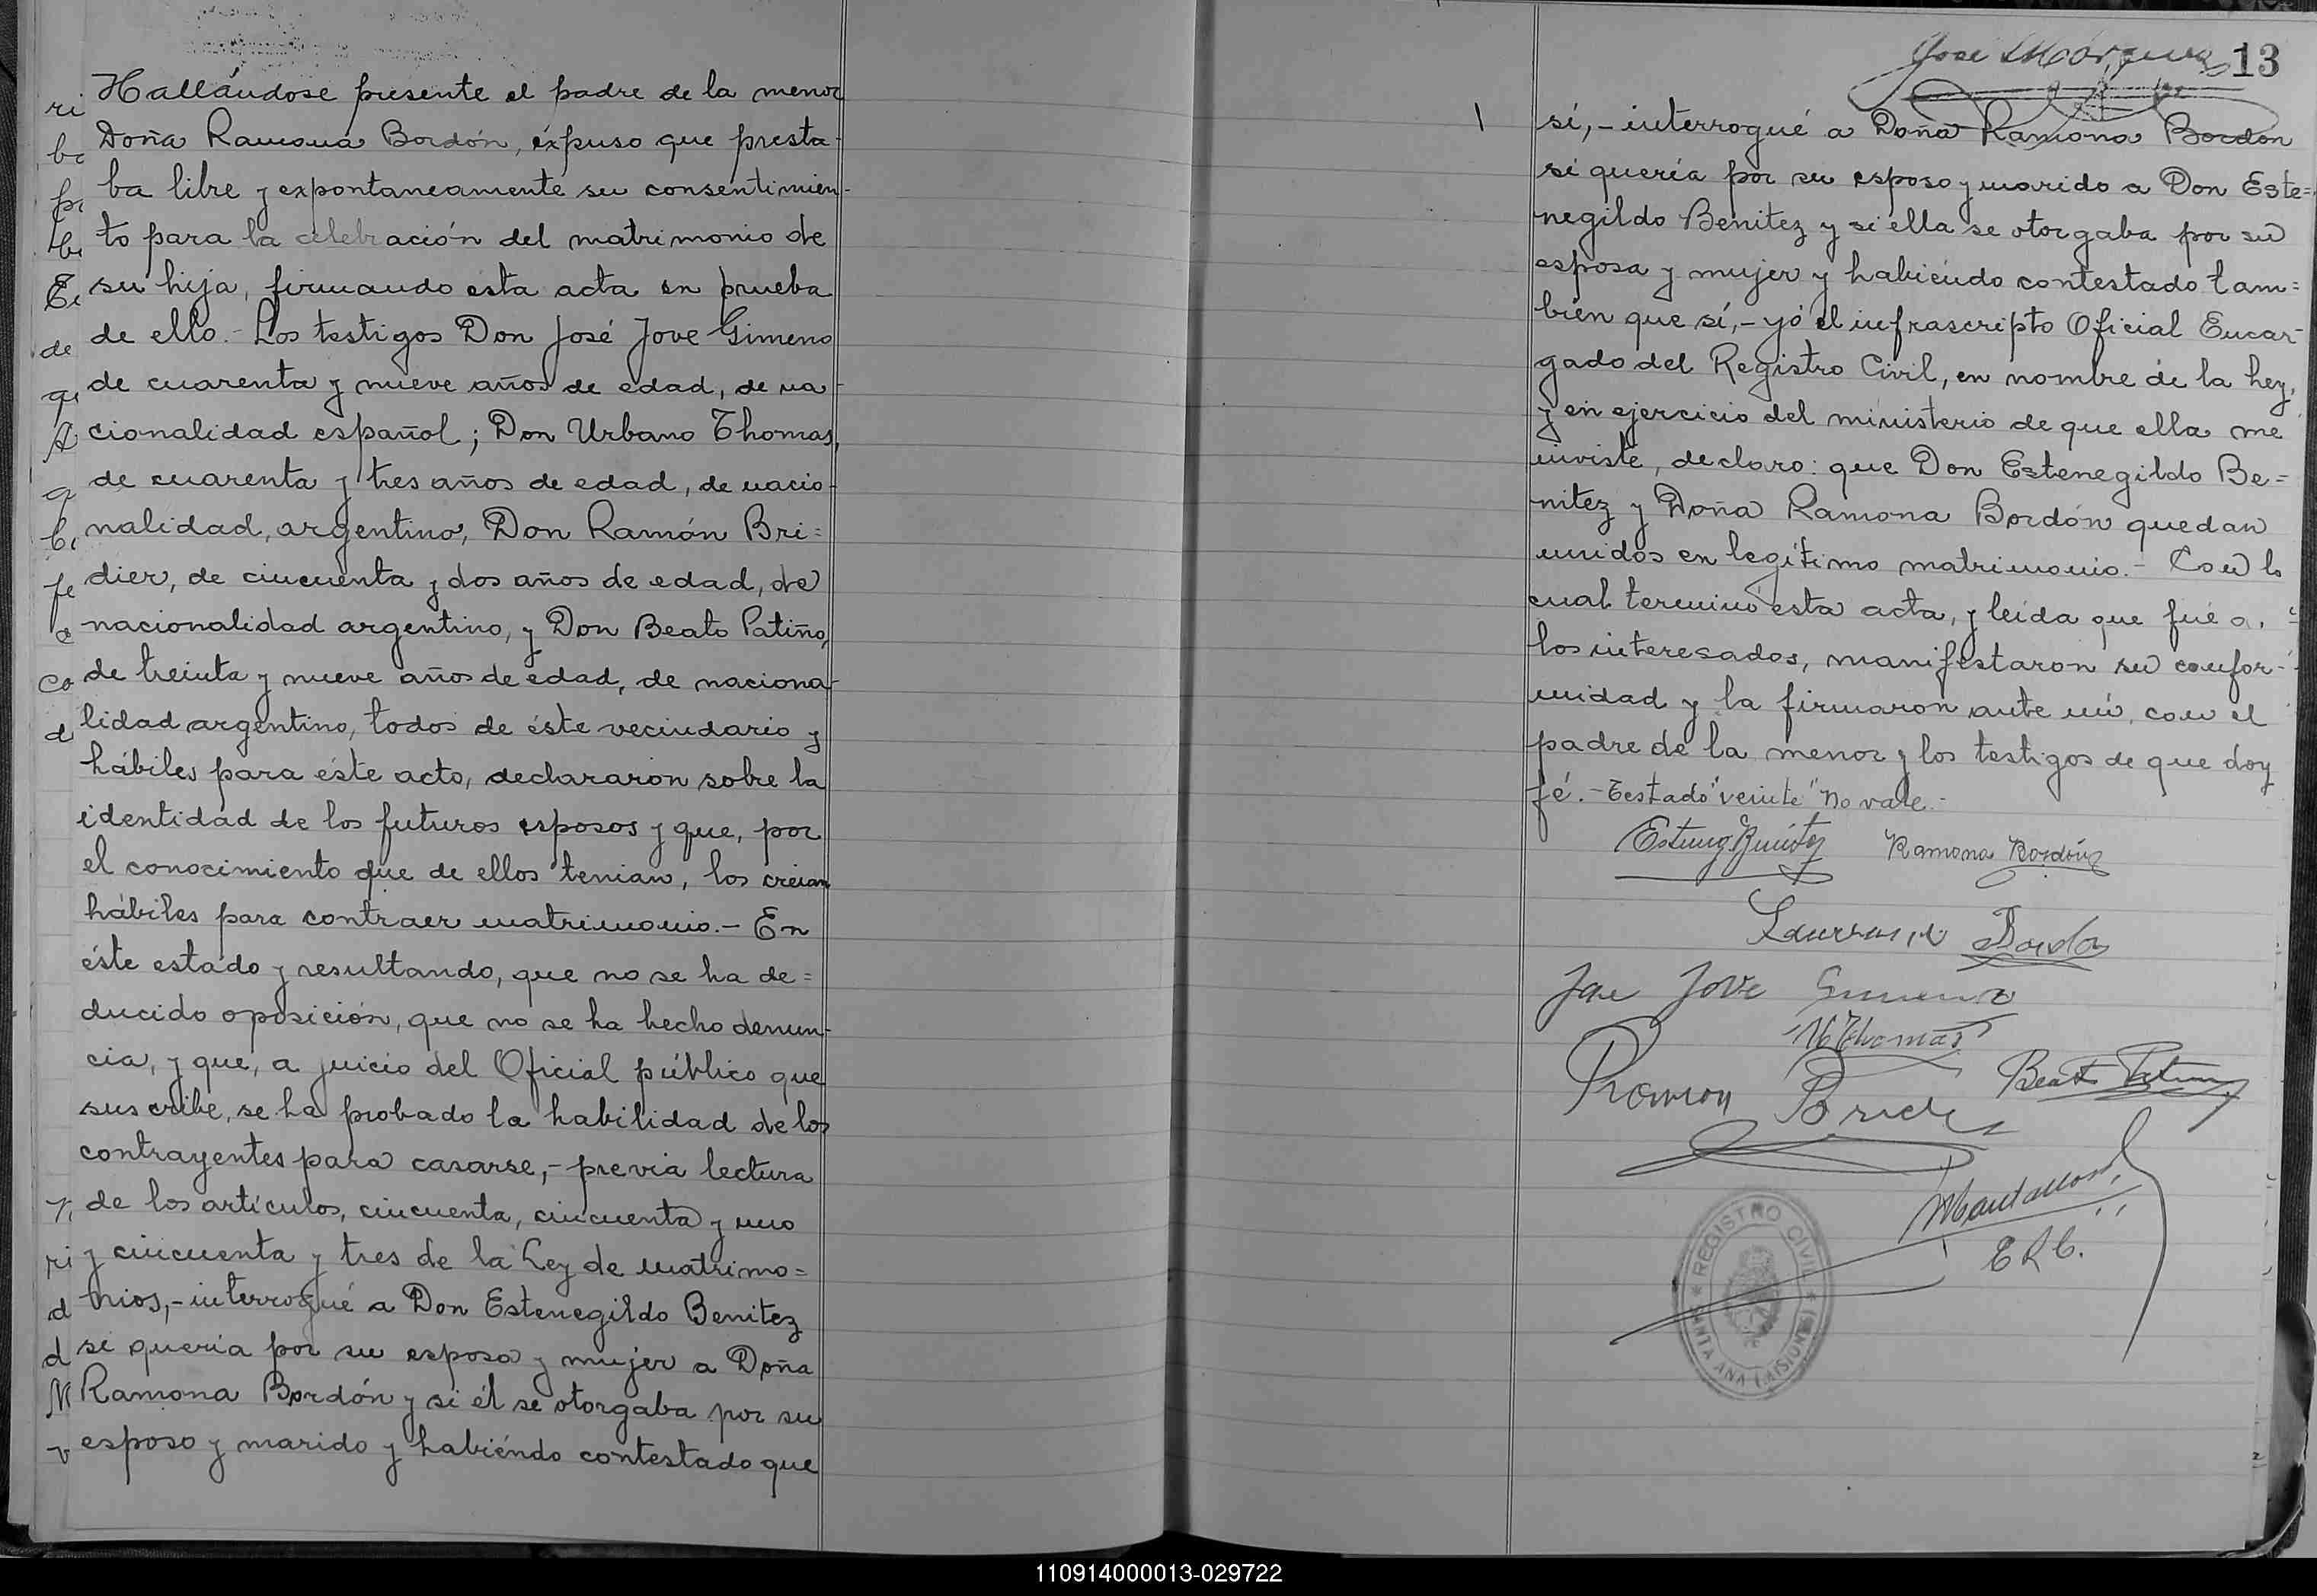 Hallándose presente el padre de la menor
Doña Ramona Bordón, expuso que presta-
ba libre y expontaneamente su consentimien-
to para la celebración del matrimonio de
su hija, firmando ésta acta en prueba
de ello.- Los testigos Don José Jove Gimeno
de cuarenta y nueve años de edad, de na-
cionalidad español; Don Urbano Thomas,
de cuarenta y tres años de edad, de nacio-
nalidad, argentino, Don Ramón Bri=
dier, de cincuenta y dos años de edad, de
nacionalidad argentino, y Don Beato Patiño,
de treinta y nueve años de edad, de naciona-
lidad argentino, todos de éste vecindario y
hábiles para éste acto, declararon sobre la
identidad de los futuros esposos y que, por
el conocimiento que de ellos tenian, los creian
hábiles para contraer matrimonio.- En
éste estado y resultando, que no se ha de=
ducido oposición, que no se ha hecho denun-
cia, y que, a juicio del Oficial público que
suscribe, se ha probado la habilidad de los
contrayentes para casarse,- previa lectura
de los artículos, cincuenta, cincuenta y uno
y cincuenta y tres de la Ley de matrimo=
nios,- interrogué a Don Estenegildo Benitez
si quería por su esposa y mujer a Doña
Ramona Bordón y si él se otorgaba por su
esposo y marido y habiéndo contestado que
José Márquez 13
sí,- interrogué a Doña Ramona Bordon
si quería por su esposo y marido a Don Este=
negildo Benitez y si ella se otorgaba por su
esposa y mujer y habiéndo contestado tam=
bién que sí,- yó el infrascripto Oficial Encar-
gado del Registro Civil, en nombre de la ley,
y en ejercicio del ministerio de que ella me
inviste, declaro: que Don Estenegildo Be=
nitez y Doña Ramona Bordón quedan
unidos en legítimo matrimonio.- Con lo
cual terminó esta acta, y leída que fué a
los interesados, manifestaron su confor-
midad y la firmaron ante mí, con el
padre de la menor y los testigos de que doy
fé.- Testado "veinte" no vale.-
Esteneg. Benítez Ramona Bordón
Jose Jove Gimeno
U Thomas
Ramon Beato Patiño
E R C.
REGISTRO CIVIL
SANTA ANA (MISIONES)
110914000013-029722